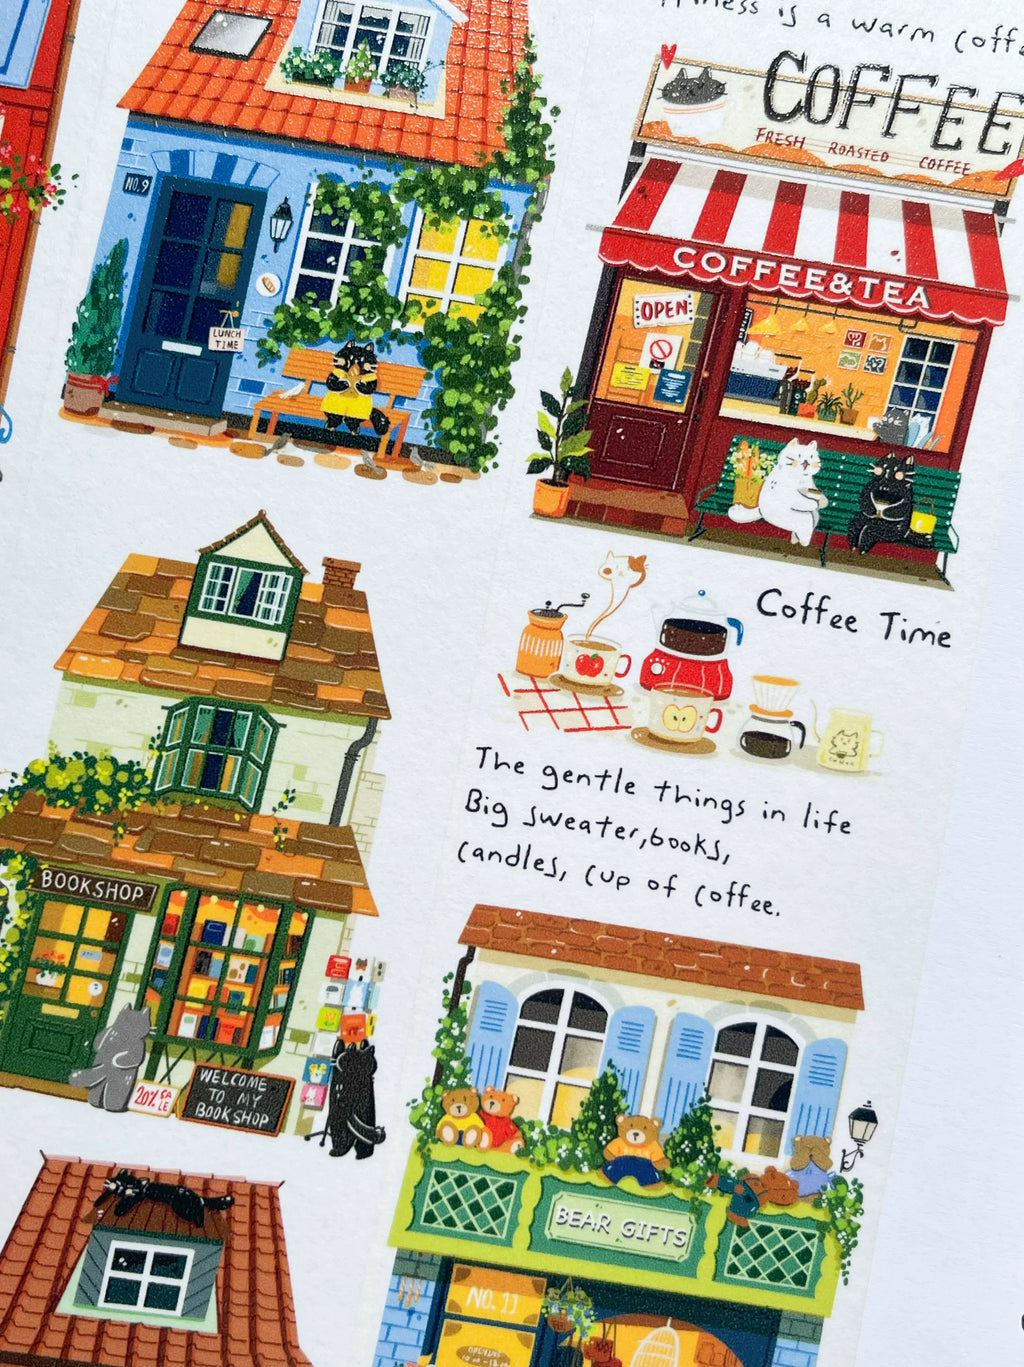 is a warm
COFFEE
FRESH ROASTED COFFEE
COFFEE&TEA
OPEN
NO.9
LUNCH
TIME
Coffee Time
The gentle things in life
Big sweater, books,
candles, cup of coffee.
BOOKSHOP
20% SA
LE
WELCOME
TO MY
BOOKSHOP
BEAR GIFTS
NO. 11